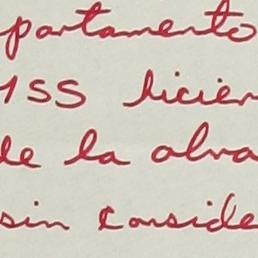 partamento
1SS licien
de la obra
sin conside